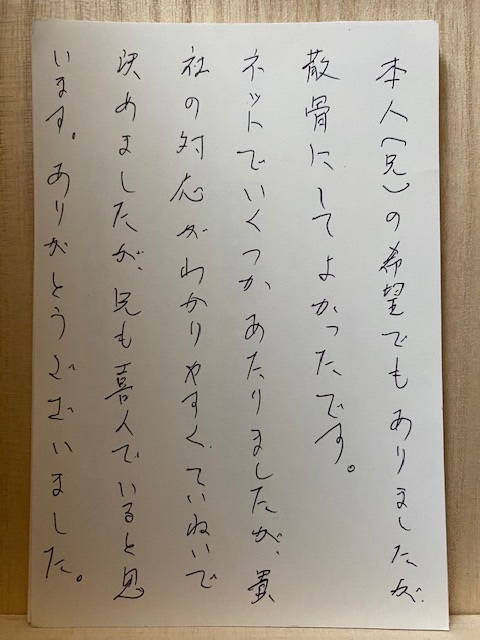 本人(兄)の希望でもありましたが
散骨にしてよかったです。
ネットでいくつかあたりましたが、貴
社の対応がわかりやすく、ていねいで
決めましたが、兄も喜んでいると思
います。ありがとうございました。